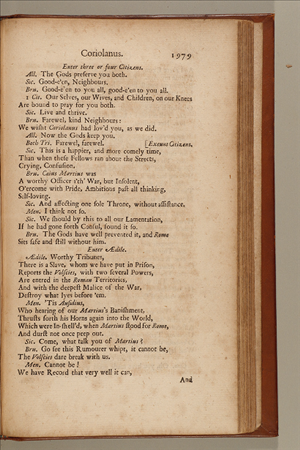 Coriolanus. 1979
Enter three or four Citizens.
All. The Gods preserve you both.
Sic. Good-e'en, Neighbours.
Bru. Good-e'en to you all, good-e'en to you all.
1 Cit. Our Selves, our Wives, and Children, on our Knees
Are bound to pray for you both.
Sic. Live and thrive.
Bru. Farewel, kind Neighbours:
We wisht Coriolanus had lov'd you, as we did.
All. Now the Gods keep you.
Both Tri. Farewel, farewel. [Exeunt Citizens.
Sic. This is a happier, and more comely time,
Than when these Fellows ran about the Streets,
Crying, Confusion.
Bru. Caius Martius was
A worthy Officer i'th' War, but Insolent,
O'ercome with Pride, Ambitious past all thinking,
Self-loving.
Sic. And affecting one sole Throne, without assistance.
Men. I think not so.
Sic. We should by this to all our Lamentation,
If he had gone forth Consul, found it so.
Bru. The Gods have well prevented it, and Rome
Sits safe and still without him.
Enter Ædile.
Ædile. Worthy Tribunes,
There is a Slave, whom we have put in Prison,
Reports the Volscies, with two several Powers,
Are entred in the Roman Territories,
And with the deepest Malice of the War,
Destroy what lyes before 'em.
Men. 'Tis Aufidius,
Who hearing of our Martius's Banishment,
Thrusts forth his Horns again into the World,
Which were In-shell'd, when Martius stood for Rome,
And durst not once peep out.
Sic. Come, what talk you of Martius?
Bru. Go see this Rumourer whipt, it cannot be,
The Volscies dare break with us.
Men. Cannot be!
We have Record that very well it can,
And